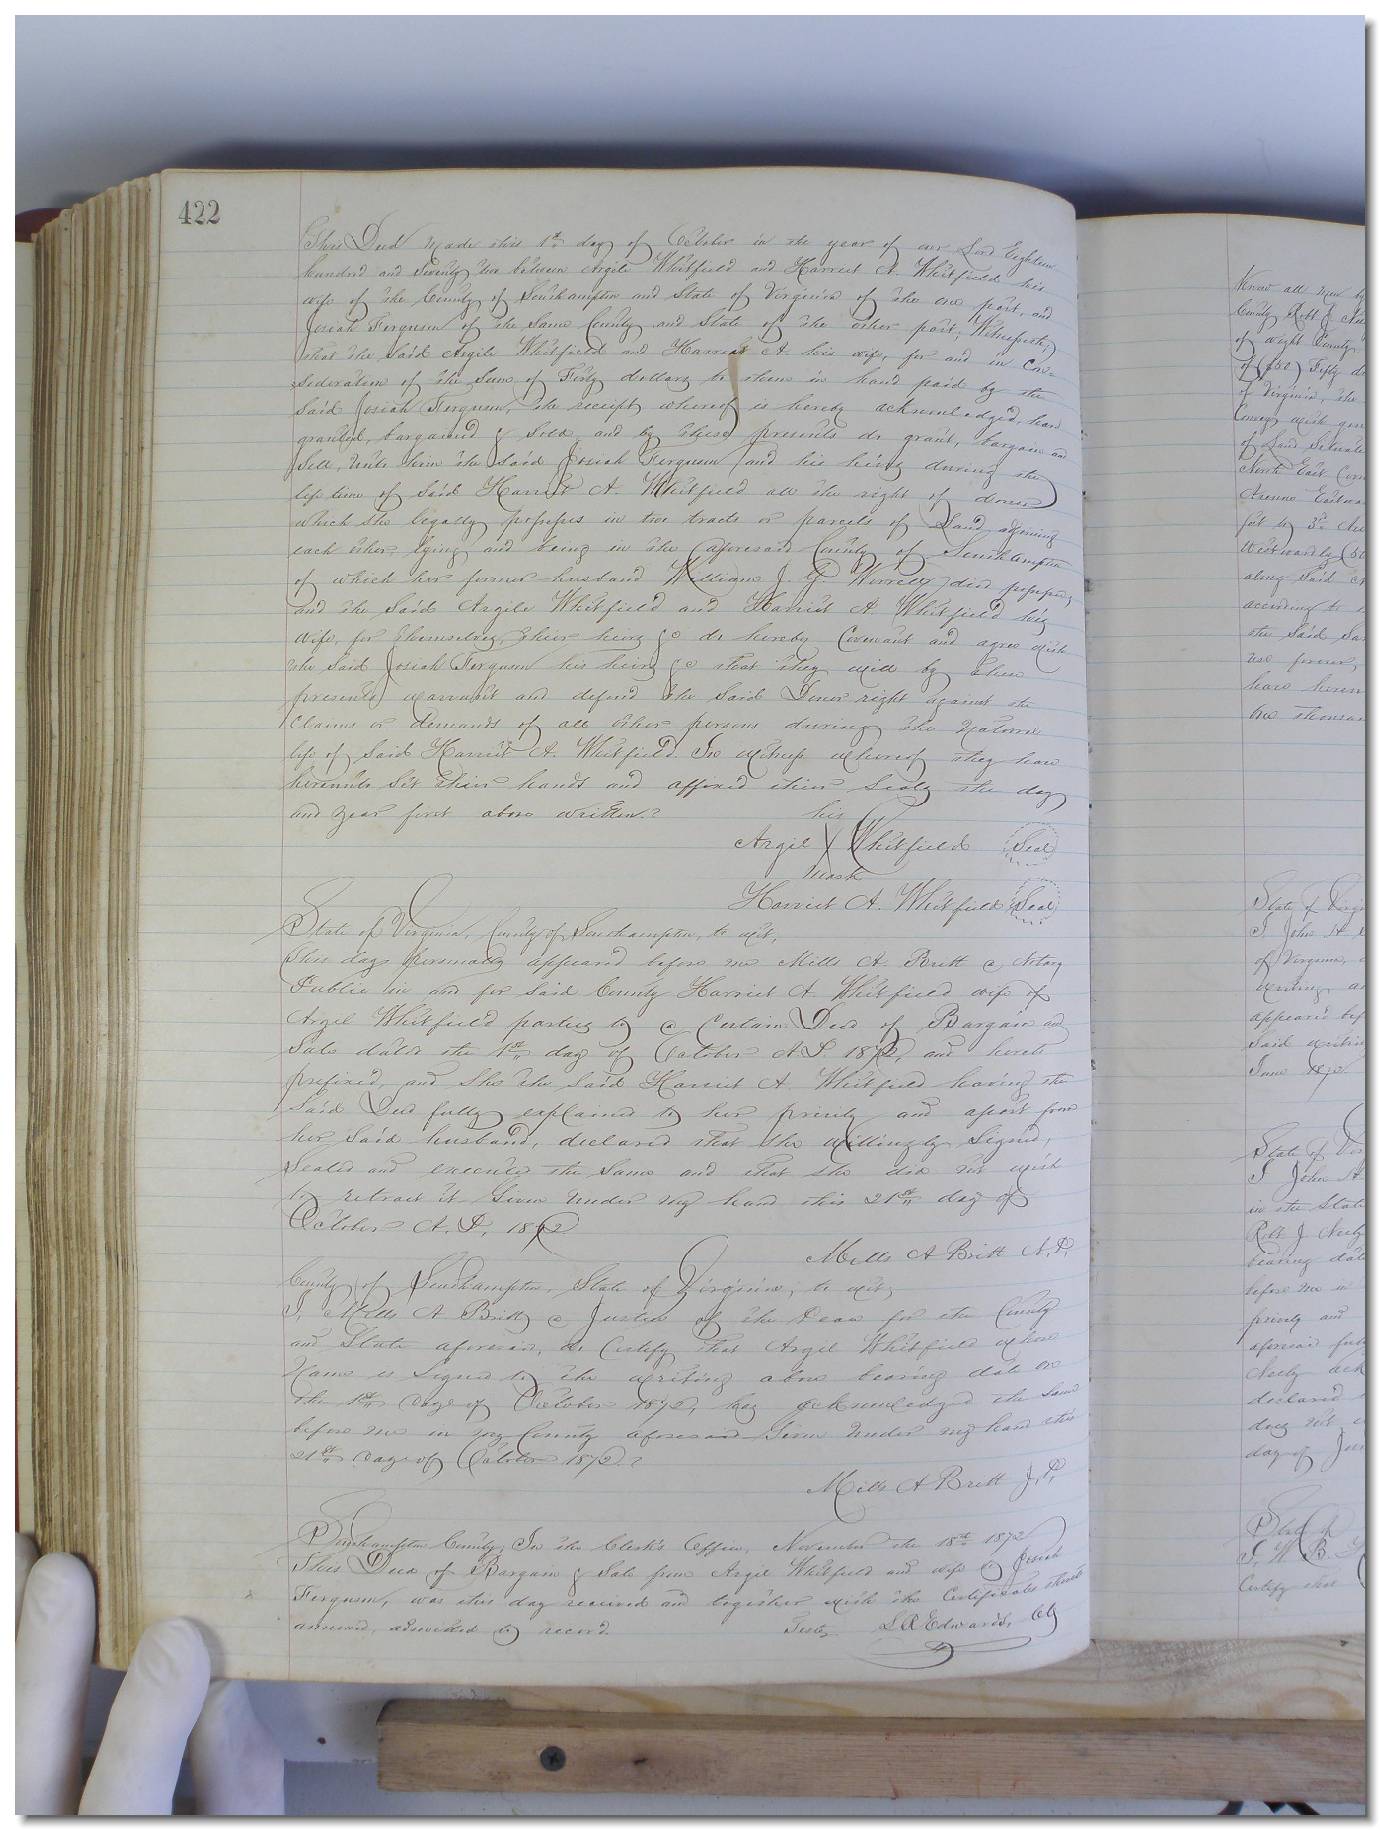 422
This Deed Made this 1st day of October in the year of our Lord Eighteen
hundred and Seventy two between Argile Whitfield and Harriet A. Whitfield his
wife of the County of Southampton and State of Virginia of the one part, and
Josiah Ferguson of the Same County and State of the other part; Witnesseth;
that the Said Argile Whitfield and Harriet A. his wife, for and in Con-
sideration of the Sum of Fifty dollars to them in hand paid by the
Said Josiah Ferguson, the receipt whereof is hereby acknowledged, have
granted, bargained & Sold, and by these presents do grant, bargain and
Sell, Unto him the Said Josiah Ferguson and his heirs during the
life time of Said Harriet A. Whitfield all the right of dower
which She legally possesses in two tracts or parcels of Land adjoining
each other lying and being in the aforesaid County of Southampton
of which her former husband William J. G. Worrell died possessed,
and the Said Argile Whitfield and Harriet A. Whitfield his
wife, for themselves, their heirs &c do hereby Covenant and agree with
the Said Josiah Ferguson his heirs &c that they will by these
presents warrant and defend the Said Dower right against the
Claims or demands of all other persons during the Natural
life of Said Harriet A. Whitfield. In witness whereof they have
hereunto Set their hands and affixed their Seals the day
and year first above written.
his
Argil X Whitfield Seal
mark
Harriet A. Whitfield Seal
State of Virginia, County of Southampton, to wit,
This day personally appeared before me Mills A. Britt a Notary
Public in and for Said County Harriet A. Whitfield wife of
Argil Whitfield parties to a Certain Deed of Bargain and
Sale dated the 1st day of October A.D. 1872, and hereto
prefixed, and She the Said Harriet A. Whitfield having the
Said Deed fully explained to her privily and apart from
her Said husband, declared that She willingly Signed,
Sealed and executed the Same and that She did not wish
to retract it Given Under my hand this 21st day of
October A.D. 1872
Mills A Britt N.P.
County of Southampton, State of Virginia, to wit,
I, Mills A Britt, a Justice of the Peace for the County
and State aforesaid, do Certify that Argil Whitfield whose
Name is Signed to the writing above bearing date on
the 1st day of October 1872, has acknowledged the Same
before me in my County aforesaid Given Under my hand this
21st day of October 1872.
Mills A Britt J.P.
Southampton County, In the Clerk's Office, November the 18th 1872
This Deed of Bargain & Sale from Argil Whitfield and wife to Josiah
Ferguson, was this day received and together with the Certificates thereto
annexed, admitted to record.
Teste, L R Edwards, Clk
Know all men by
County Robt J
of Wight County
of ($50) Fifty
of Virginia, the
Convey with
of Land Situate
North East Corn
Avenue Eastwa
Westwardly
along Said
according to
the Said
use forever,
have hereun
One thousan
State of Virgi
I, John H
of Virginia,
writing
appeared bef
Said writin
June 1872
State of Vir
I John H
in the State
Robt J Neely
bearing dat
before me in
privily and
aforesaid full
Neely ack
declared
does not
day of Jun
State of
I, W. B.
Certify that